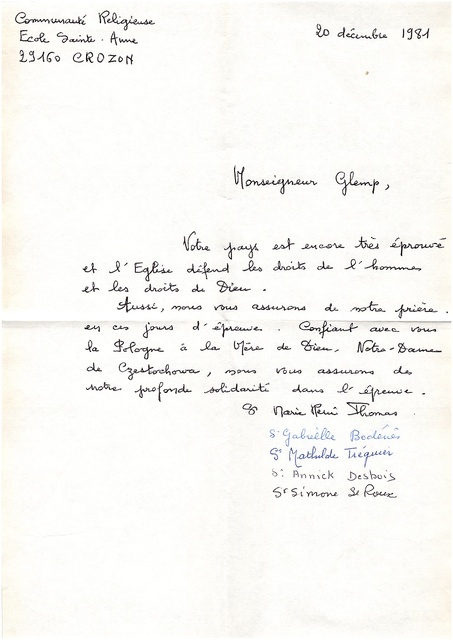 Communauté Religieuse
Ecole Sainte-Anne
29160 CROZON
20 décembre 1981
Monseigneur Glemp,
Votre pays est encore très éprouvé
et l'Eglise défend les droits de l'hommes
et les droits de Dieu.
Aussi, nous vous assurons de notre prière
en ces jours d'épreuve. Confiant avec vous
la Pologne à la Mère de Dieu, Notre-Dame
de Czestochowa, nous vous assurons de
notre profonde solidarité dans l'épreuve.
Sr Marie Henri Thomas
Sr Gabrielle Bodénès
Sr Mathilde Tréguier
Sr Annick Desbois
Sr Simone Le Roux